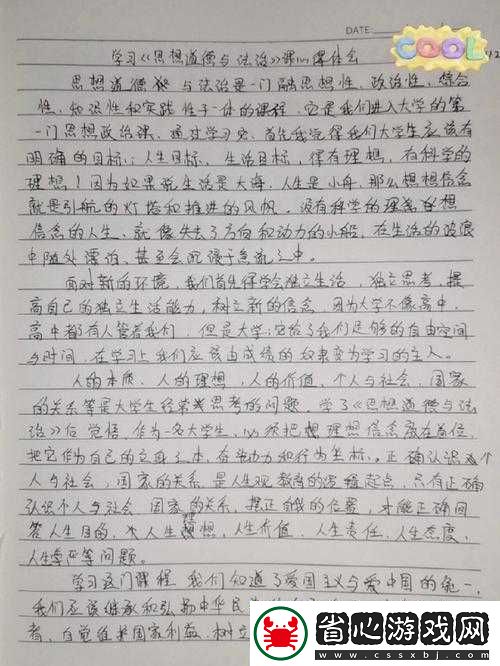 DATE:
COOL
学习《思想道德与法治》课心得体会
思想道德和与法治是一门融思想性、政治性、综合
性、知识性和实践性于一体的课程。它是我们进入大学的第
一门思想政治课。通过学习我首先我觉得我们大学生应该有
明确的目标:人生目标、生活目标，得有理想，有科学的
理想！因为如果说生活是大海，人生是小舟，那么想想信念
就是引航的灯塔和推进的风帆。没有科学的理想
信念的人生，就像失去了方向和动力的小船，在生活的波浪
中随处漂泊，甚至会沉浸于急流之中。
面对新的环境，我们首先得学会独立生活，独立思考，提
高自己的独立生活能力，树立新的信念，因为大学不像高中，
高中都有人管着我们，但是大学它给了我们足够的自由空间
与时间，在学习上我们应该由成绩的奴隶变为学习的主人。
人的本质、人的理想，人的价值，个人与社会、国家
的关系等是大学生经常思考的问题。学了《思想道德与法
治》后觉悟，作为一名大学生，必须把理想信念放在首位，
把它作为自己的立身之本，在劳动力和行为坐标。正确认识个
人与社会，国家的关系，是人生观教育的逻辑起点，只有正确
认识个人与社会、国家的关系，摆正自我的位置，才能正确回
答人生目的、人生理想，人生价值、人生责任、人生态度、
人生尊严等问题。
学习这门课程，我们知道了爱国主义与爱中国的统一，
我们应该继承和弘扬中华民
者，自觉维护国家利益，树立
省心游戏网
www.cssxbj.com